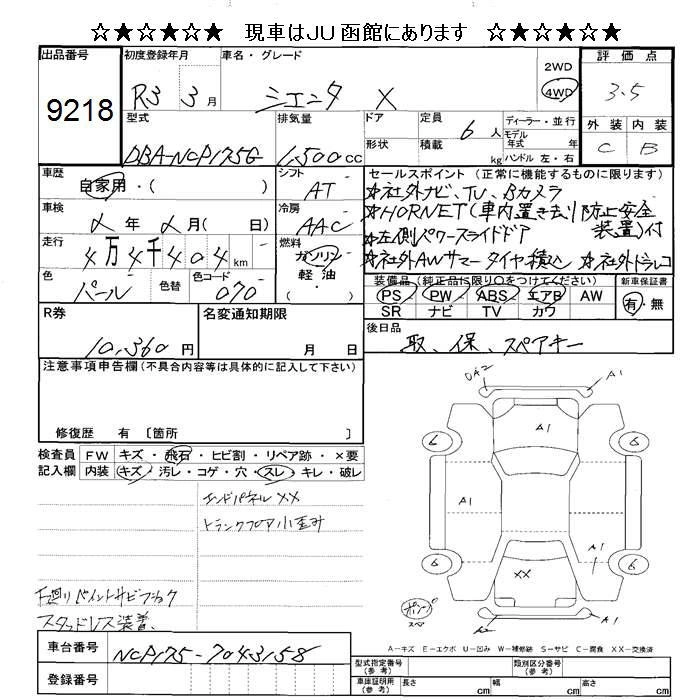 ☆★☆★☆★ 現車はJU函館にあります ☆★☆★☆★
出品番号
9218
初度登録年月
R3 3月
車名・グレード
シエンタ X
2WD
4WD
評価点
3.5
外装 内装
C B
型式
DBA-NCP175G
排気量
1,500cc
ドア
形状
定員
6人
積載
kg
ディーラー・並行
モデル年式 年
ハンドル 左・右
車歴
自家用・( )
シフト
AT
車検
年 月( 日)
冷房
AAC
走行
4万4千404km
燃料
ガソリン
軽油
・( )
色
パール
色替
色コード
070
セールスポイント(正常に機能するものに限ります)
☆社外ナビ、TV、Bカメラ
☆HORNET(車内置き去り防止安全装置)付
☆左側パワースライドドア
☆社外AWサマータイヤ積込 ☆社外ドラレコ
装備品(純正品に限り○をつけてください)
PS PW ABS エアB AW
SR ナビ TV カワ
新車保証書
有・無
R券
10,360円
名変通知期限
月 日
後日品
取、保、スペアキー
注意事項申告欄(不具合内容等は具体的に記入して下さい)
修復歴 有 〔箇所 〕
検査員記入欄
FW キズ・飛石・ヒビ割・リペア跡・×要
内装 キズ・汚レ・コゲ・穴・スレ・キレ・破レ
エンドパネルXX
トランクフロア小歪み
下廻りペイントサビブラック
スタッドレス装着
A1
A1
A1
A1
XX
6
6
6
6
A－キズ E－エクボ U－凹み W－補修跡 S－サビ C－腐食 XX－交換済
車台番号
NCP175-7043158
登録番号
型式指定番号(参考)
類別区分番号(参考)
車庫証明用(参考)
長さ cm
幅 cm
高さ cm